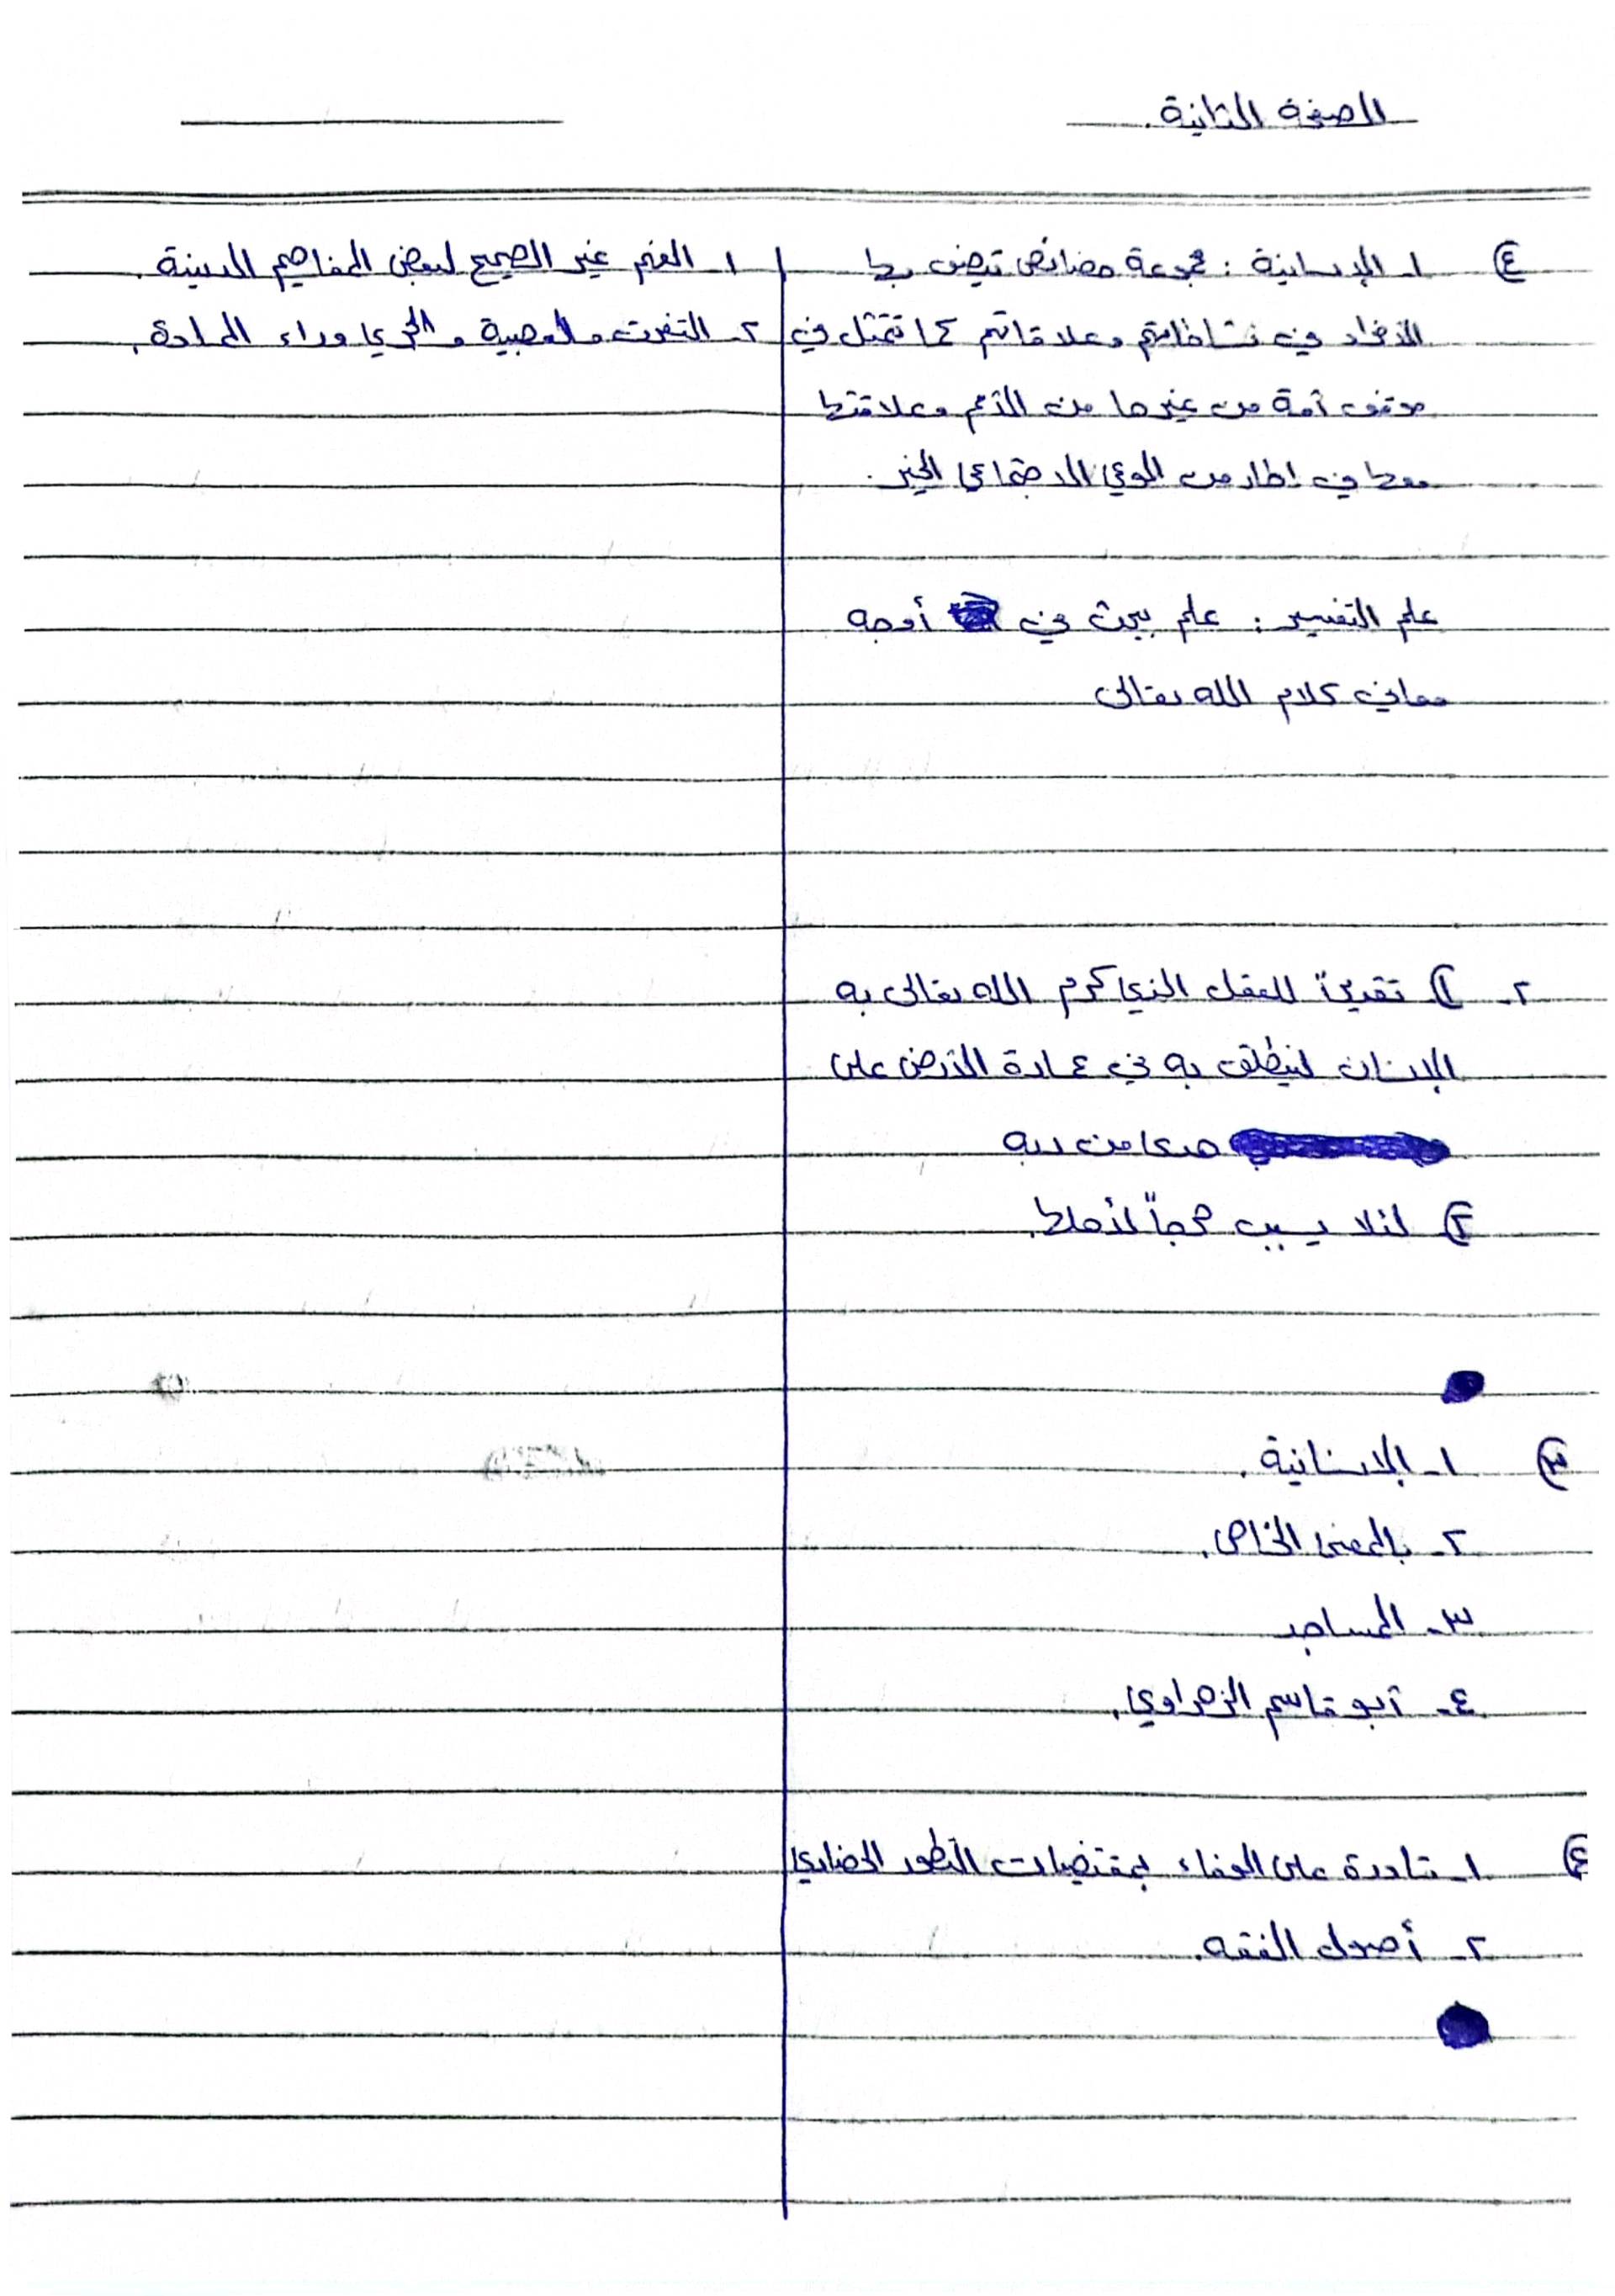 الصفحة الثانية.
٤) ١- الإنسانية : مجموعة خصائص تتصف بها
الأفراد في نشاطاتهم وعلاقاتهم كما تتمثل في
موقف أمة من غيرها من الأمم وعلاقتها
معها في إطار من الوعي الاجتماعي الخير.
علم التفسير : علم يبحث في أوجه
معاني كلام الله تعالى
٢- ١) تقديراً للعقل الذي كرم الله تعالى به
الإنسان لينطلق به في عمارة الأرض على
هدى من ربه
٢) لئلا يسبب حرجاً لأهلها.
٣) ١- الإنسانية.
٢- بالمعنى الخاص.
٣- المساجد
٤- أبو قاسم الزهراوي.
٤) ١- قادرة على الوفاء بمقتضيات التطور الحضاري
٢- أصول الفقه.
١- الفهم غير الصحيح لبعض المفاهيم الدينية.
٢- التفرق والعصبية والجري وراء المادة.